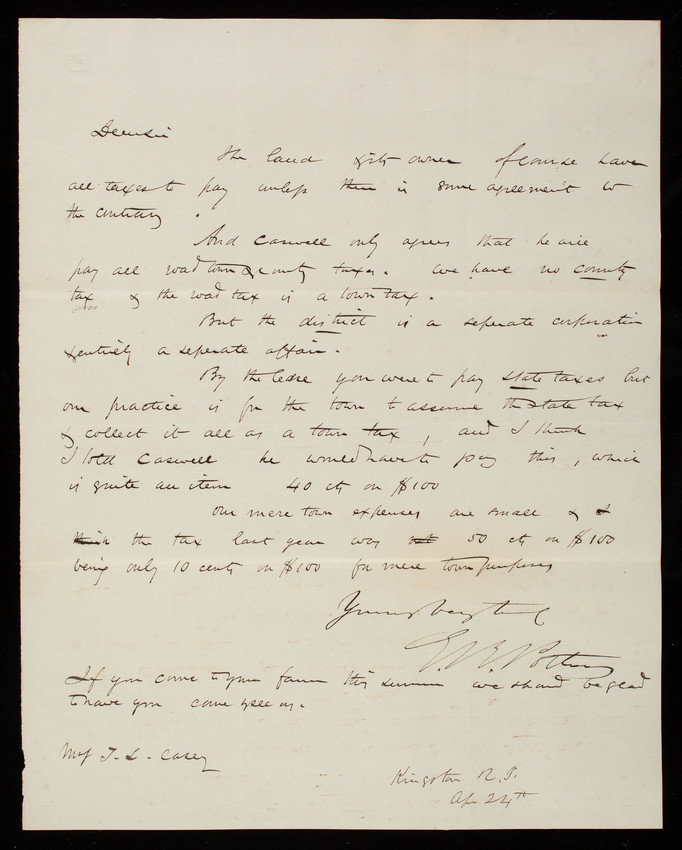 Dear Sir
The land & its owner of course have
all taxes to pay unless there is some agreement to
the contrary.
And Caswell only agrees that he will
pay all road town & county taxes. we have no county
tax & the road tax is a town tax.
But the district is a seperate corporation
& entirely a seperate affair.
By the lease you were to pay state taxes but
our practice is for the town to assume the state tax
& collect it all as a town tax, and I think
I told Caswell he would have to pay this, which
is quite an item 40 cts on $100
our mere town expenses are small & I
think the tax last year was not 50 cts on $100
being only 10 cents on $100 for mere town purposes
Yours very truly
E. R. Potter
If you come to your farm this summer we should be glad
to have you come & see us.
T. L. Casey
Kingston R.I.
Ap 24th